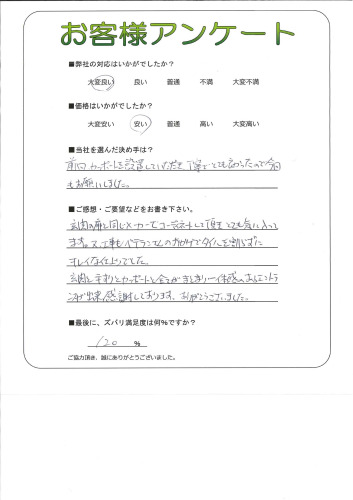 お客様アンケート
■弊社の対応はいかがでしたか？
大変良い 良い 普通 不満 大変不満
■価格はいかがでしたか？
大変安い 安い 普通 高い 大変高い
■当社を選んだ決め手は？
前回カーポートを設置していただき丁寧でとても良かったので今回
もお願いしました。
■ご感想・ご要望などをお書き下さい。
玄関の扉と同じメーカーでコーディネートして頂きとても気に入って
ます。又工事もベテランさんのおかげでタイルを割らずに
キレイな仕上りでした。
玄関と手すりとカーポートと全てがまとまり一体感のあるエントラ
ンスが出来、感謝しております。ありがとうございました。
■最後に、ズバリ満足度は何％ですか？
120 ％
ご協力頂き、誠にありがとうございました。